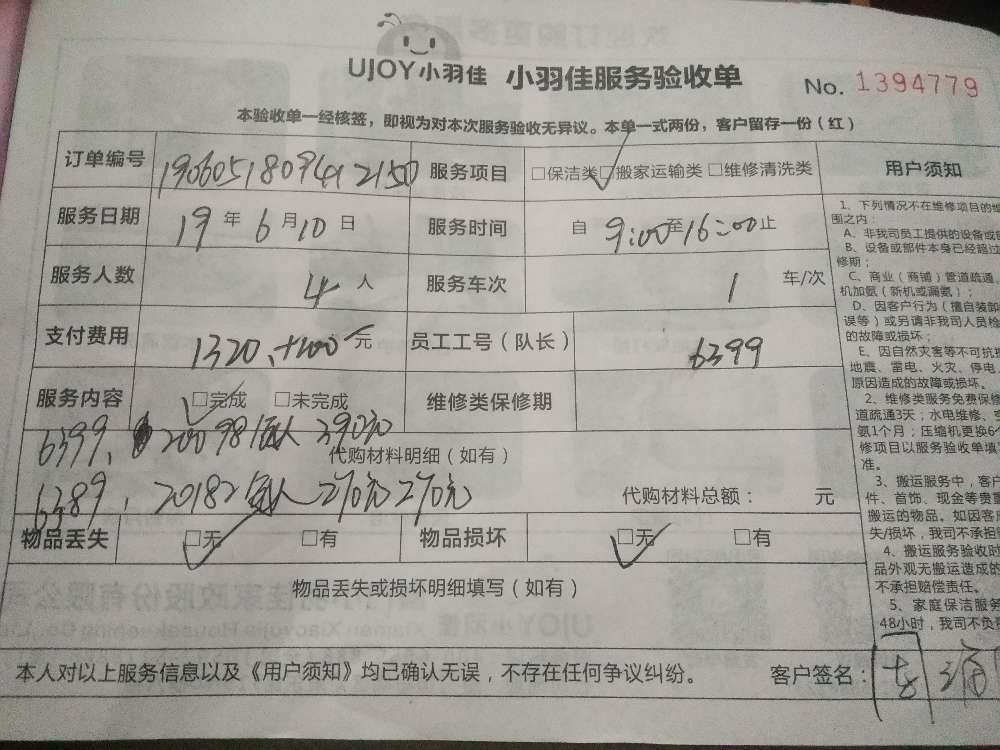 UJOY小羽佳 小羽佳服务验收单 No. 1394779
本验收单一经核签，即视为对本次服务验收无异议。本单一式两份，客户留存一份（红）
订单编号 服务项目 □保洁类□搬家运输类 □维修清洗类 用户须知
服务日期 19 年 6 月 10 日 服务时间 自 9:00 至 16:00 止
服务人数 4 人 服务车次 1 车/次
支付费用 1320、+200 元 员工工号（队长） 6399
服务内容 □完成 □未完成 维修类保修期
6399、 390元
代购材料明细（如有）
6389、20182 270元 270元 代购材料总额： 元
物品丢失 □无 □有 物品损坏 □无 □有
物品丢失或损坏明细填写（如有）
本人对以上服务信息以及《用户须知》均已确认无误，不存在任何争议纠纷。 客户签名：
1、下列情况不在维修项目的
围之内：
A、非我司员工提供的设备或
B、设备或部件本身已经超过
修期；
C、商业（商铺）管道疏通、
机加氨（新机或漏氨）；
D、因客户行为（擅自装卸
误等）或另请非我司人员检
的故障或损坏；
E、因自然灾害等不可抗
地震、雷电、火灾、停电、
原因造成的故障或损坏。
2、维修类服务免费保修
道疏通3天；水电维修、
氨1个月；压缩机更换6个
修项目以服务验收单填
准。
3、搬运服务中，客户
件、首饰、现金等贵重
搬运的物品。如因客户
失/损坏，我司不承担
4、搬运服务验收时
品外观无搬运造成的
不承担赔偿责任。
5、家庭保洁服务
48小时，我司不负